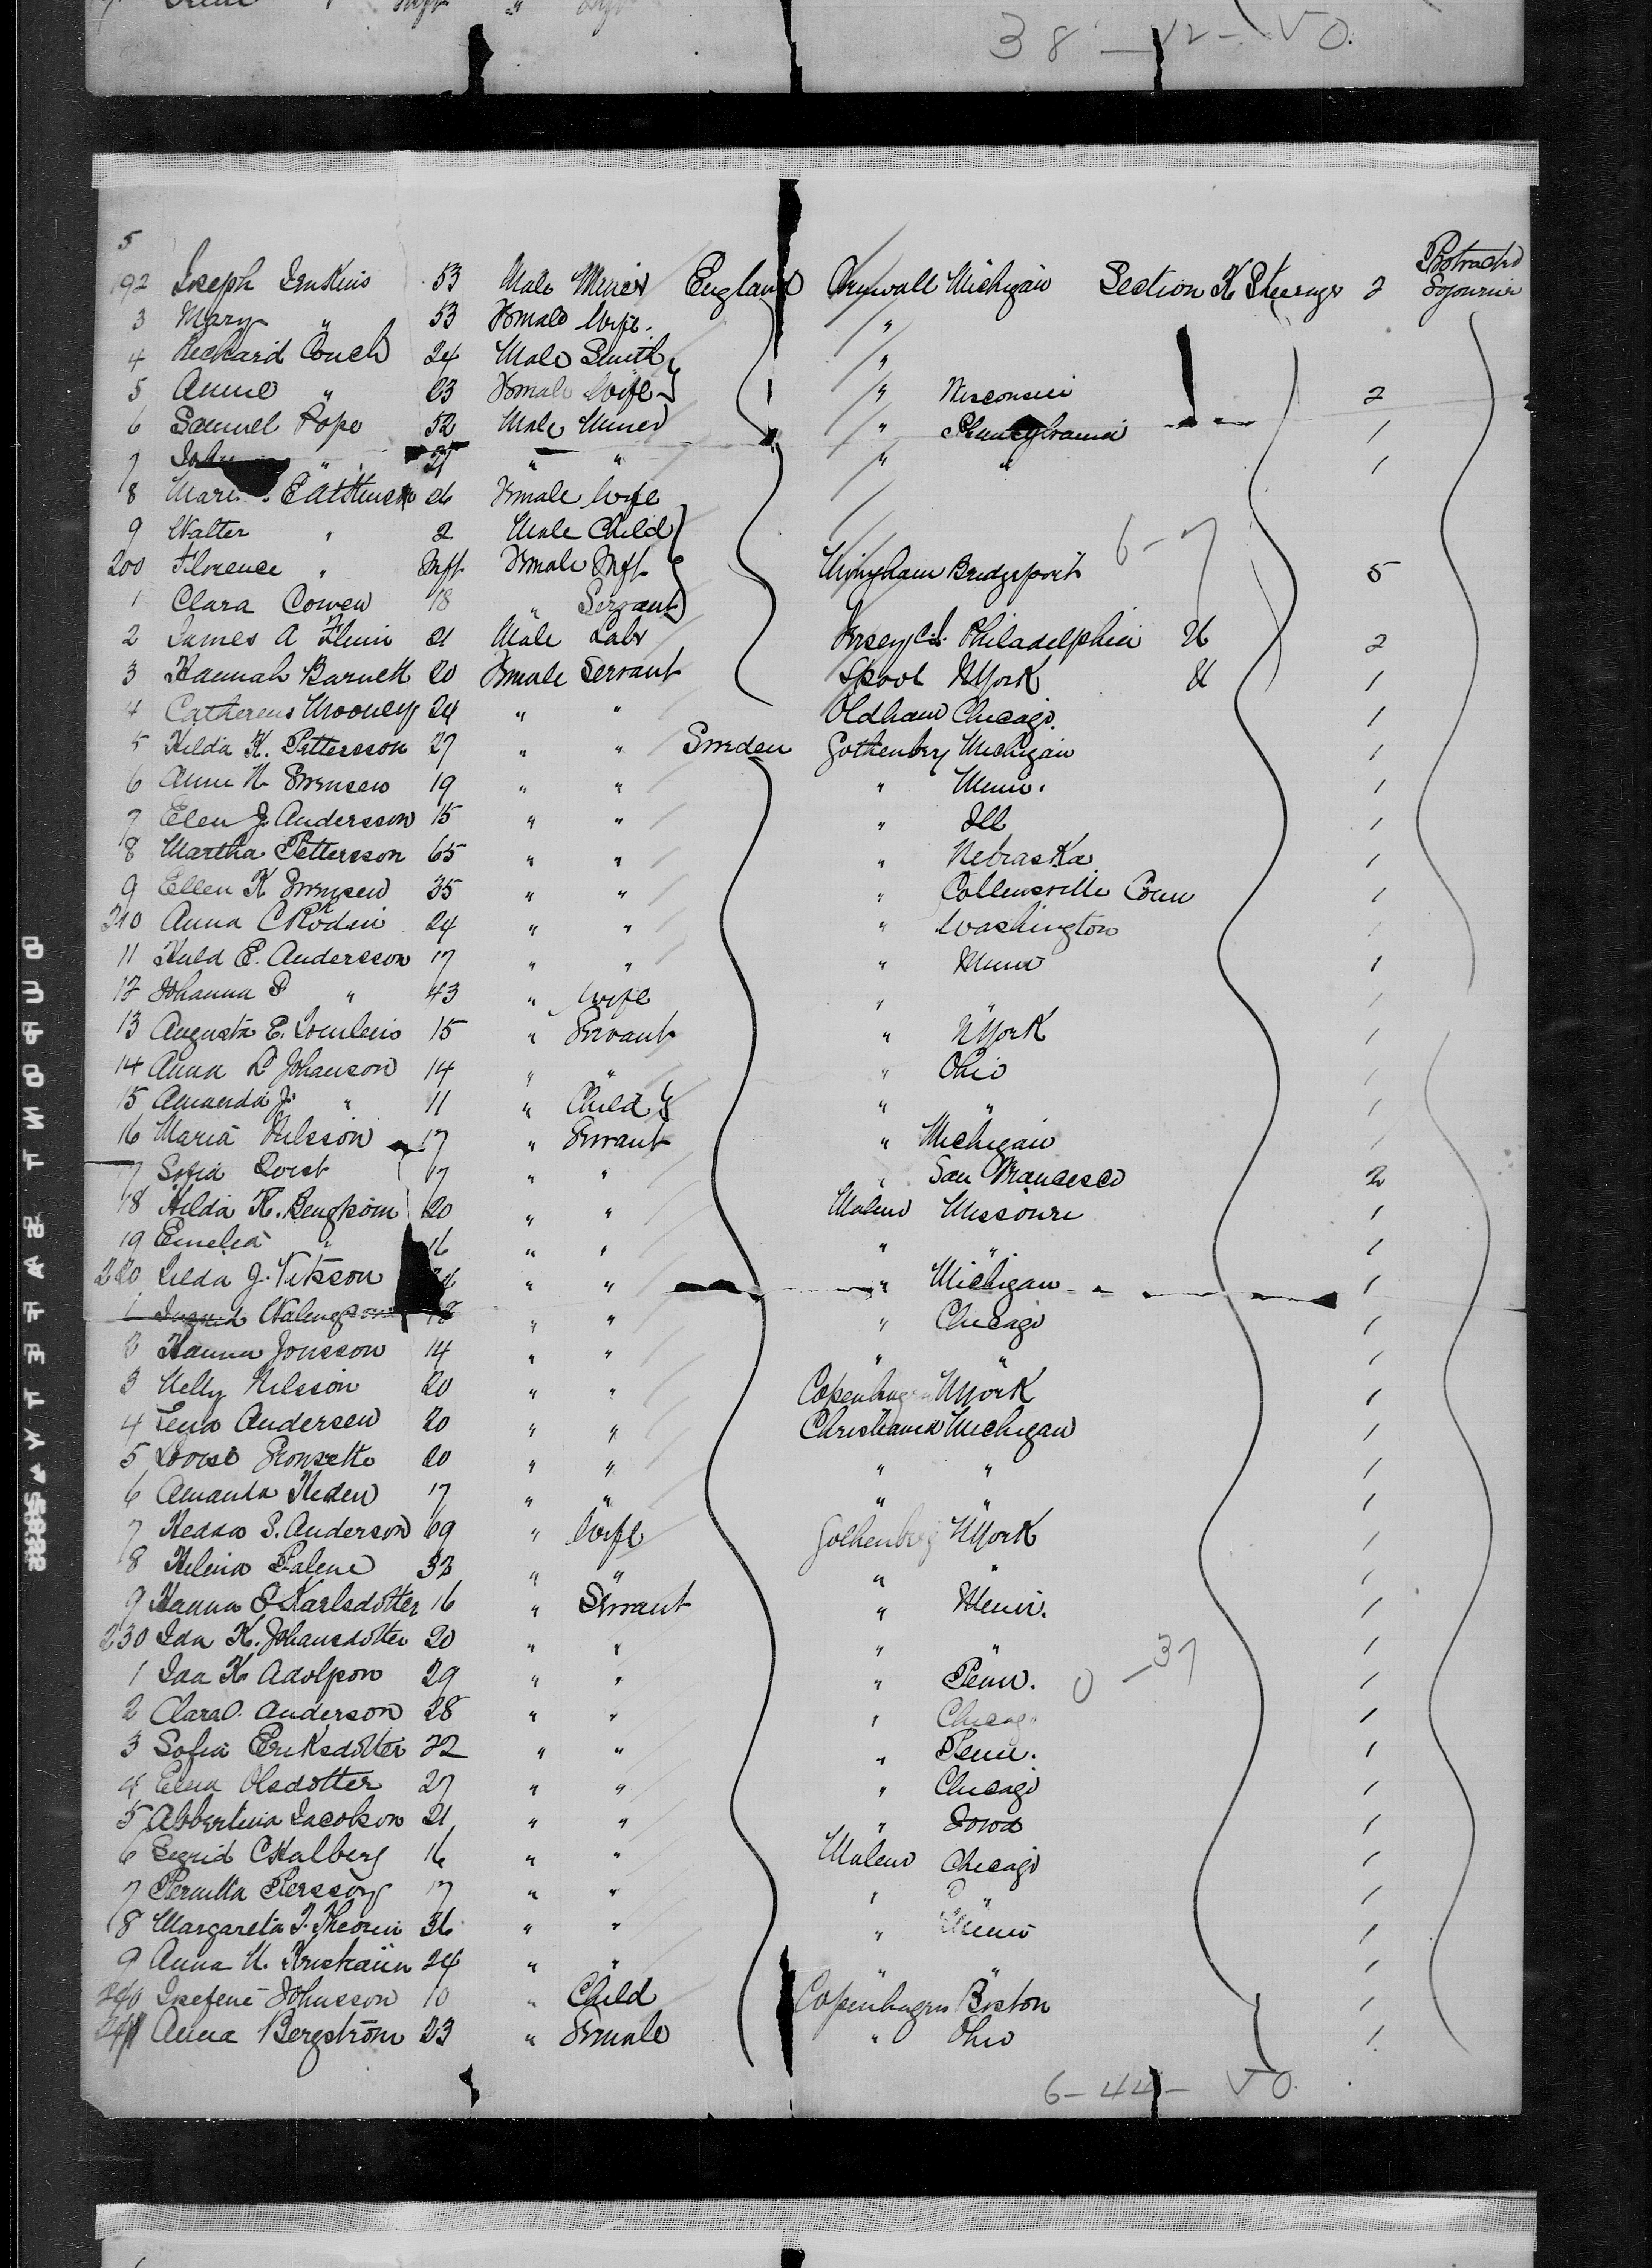 38 - 42 - V 0.
5
192 Joseph Jenkins 53 Male Miner England Cornwall Michigan Section H Steerage 2 Protracted Sojourner
3 Mary " 53 Female Wife. "
4 Richard Couch 24 Male Smith "
5 Annie " 23 Female Wife " Wisconsin 2
6 Samuel Pope 52 Male Miner " Pennsylvania 1
7 John " 21 " " " " 1
8 26 Female Wife
9 Walter " 2 Male Child 6-7
200 Florence " Inft Female Inft. Bridgeport 5
1 Clara Cowen 18 " Servant
2 James A 21 Male Labr Philadelphia 2
3 Hannah Barnett 20 Female Servant Lpool NYork 1
4 Catherine Mooney 24 " " Oldham Chicago. 1
5 Hilda K. Pettersson 27 " " Sweden Gothenberg Michigan 1
6 Anna 19 " " " Minn. 1
7 Elen J. Andersson 15 " " " Ill 1
8 Martha Pettersson 65 " " " Nebraska 1
9 Ellen K 35 " " " Collensville Conn 1
210 Anna C Rodin 24 " " " Washington
11 Huld E. Andersson 17 " " " Minn 1
12 Johanna S " 43 " Wife "
13 Augusta E. 15 " Servant " NYork 1
14 Anna L Johanson 14 " " " Ohio 1
15 Amanda J. " 11 " Child " " 1
16 Maria Nilsson 17 " Servant " Michigan 1
17 Sofia 17 " " " San Francisco 2
18 Hilda K. 20 " " Malmo Missouri 1
19 Emelia " 16 " " " " 1
220 J. " " " Michigan 1
1 Ingrid 18 " " " Chicago 1
2 Hanna Jonsson 14 " " " " 1
3 Nelly Nilsson 20 " " Copenhagen NYork 1
4 Lena Andersen 20 " " Christiania Michigan 1
5 20 " " " " 1
6 Amanda Heden 17 " " " " 1
7 S. Anderson 69 " Wife Gothenberg NYork 1
8 Helena 32 " " " " 1
9 Hanna S Karlsdotter 16 " Servant " Minn. 1
230 Ida K. Johansdotter 20 " " " " 1
1 Ida K Adolfson 29 " " " Penn. 0 - 37 1
2 Clara O. Anderson 28 " " " Chicago 1
3 Sofia Eriksdotter 22 " " " Penn. 1
4 Elna Olsdotter 27 " " " Chicago 1
5 Albertina Jacobson 21 " " " Iowa 1
6 Segrid C Halberg 16 " " Malmo Chicago 1
7 Pernilla Persson 17 " " " " 1
8 Margareta 36 " " " Minn 1
9 Anna 24 " " " " 1
240 Josefine Johnsson 10 " Child Copenhagen Boston 1
241 Anna Bergström 23 " Female " Ohio 1
6 - 44 - V 0.